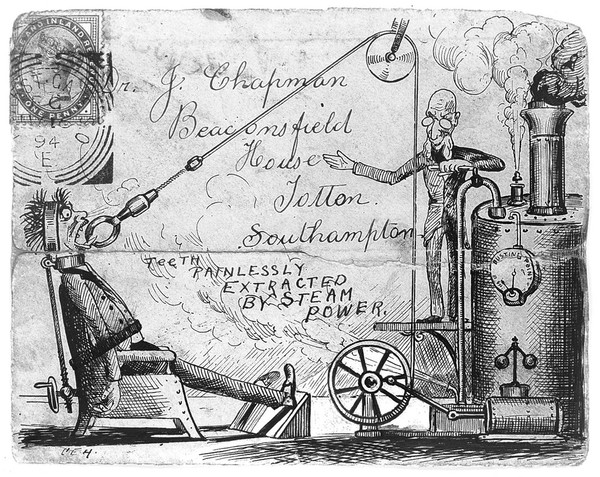 AND INLAND RE
ONE PENNY
94
E
Dr. J. Chapman
Beaconsfield
House
Totton.
Southampton
TEETH
PAINLESSLY
EXTRACTED
BY STEAM
POWER.
BUSTING POINT